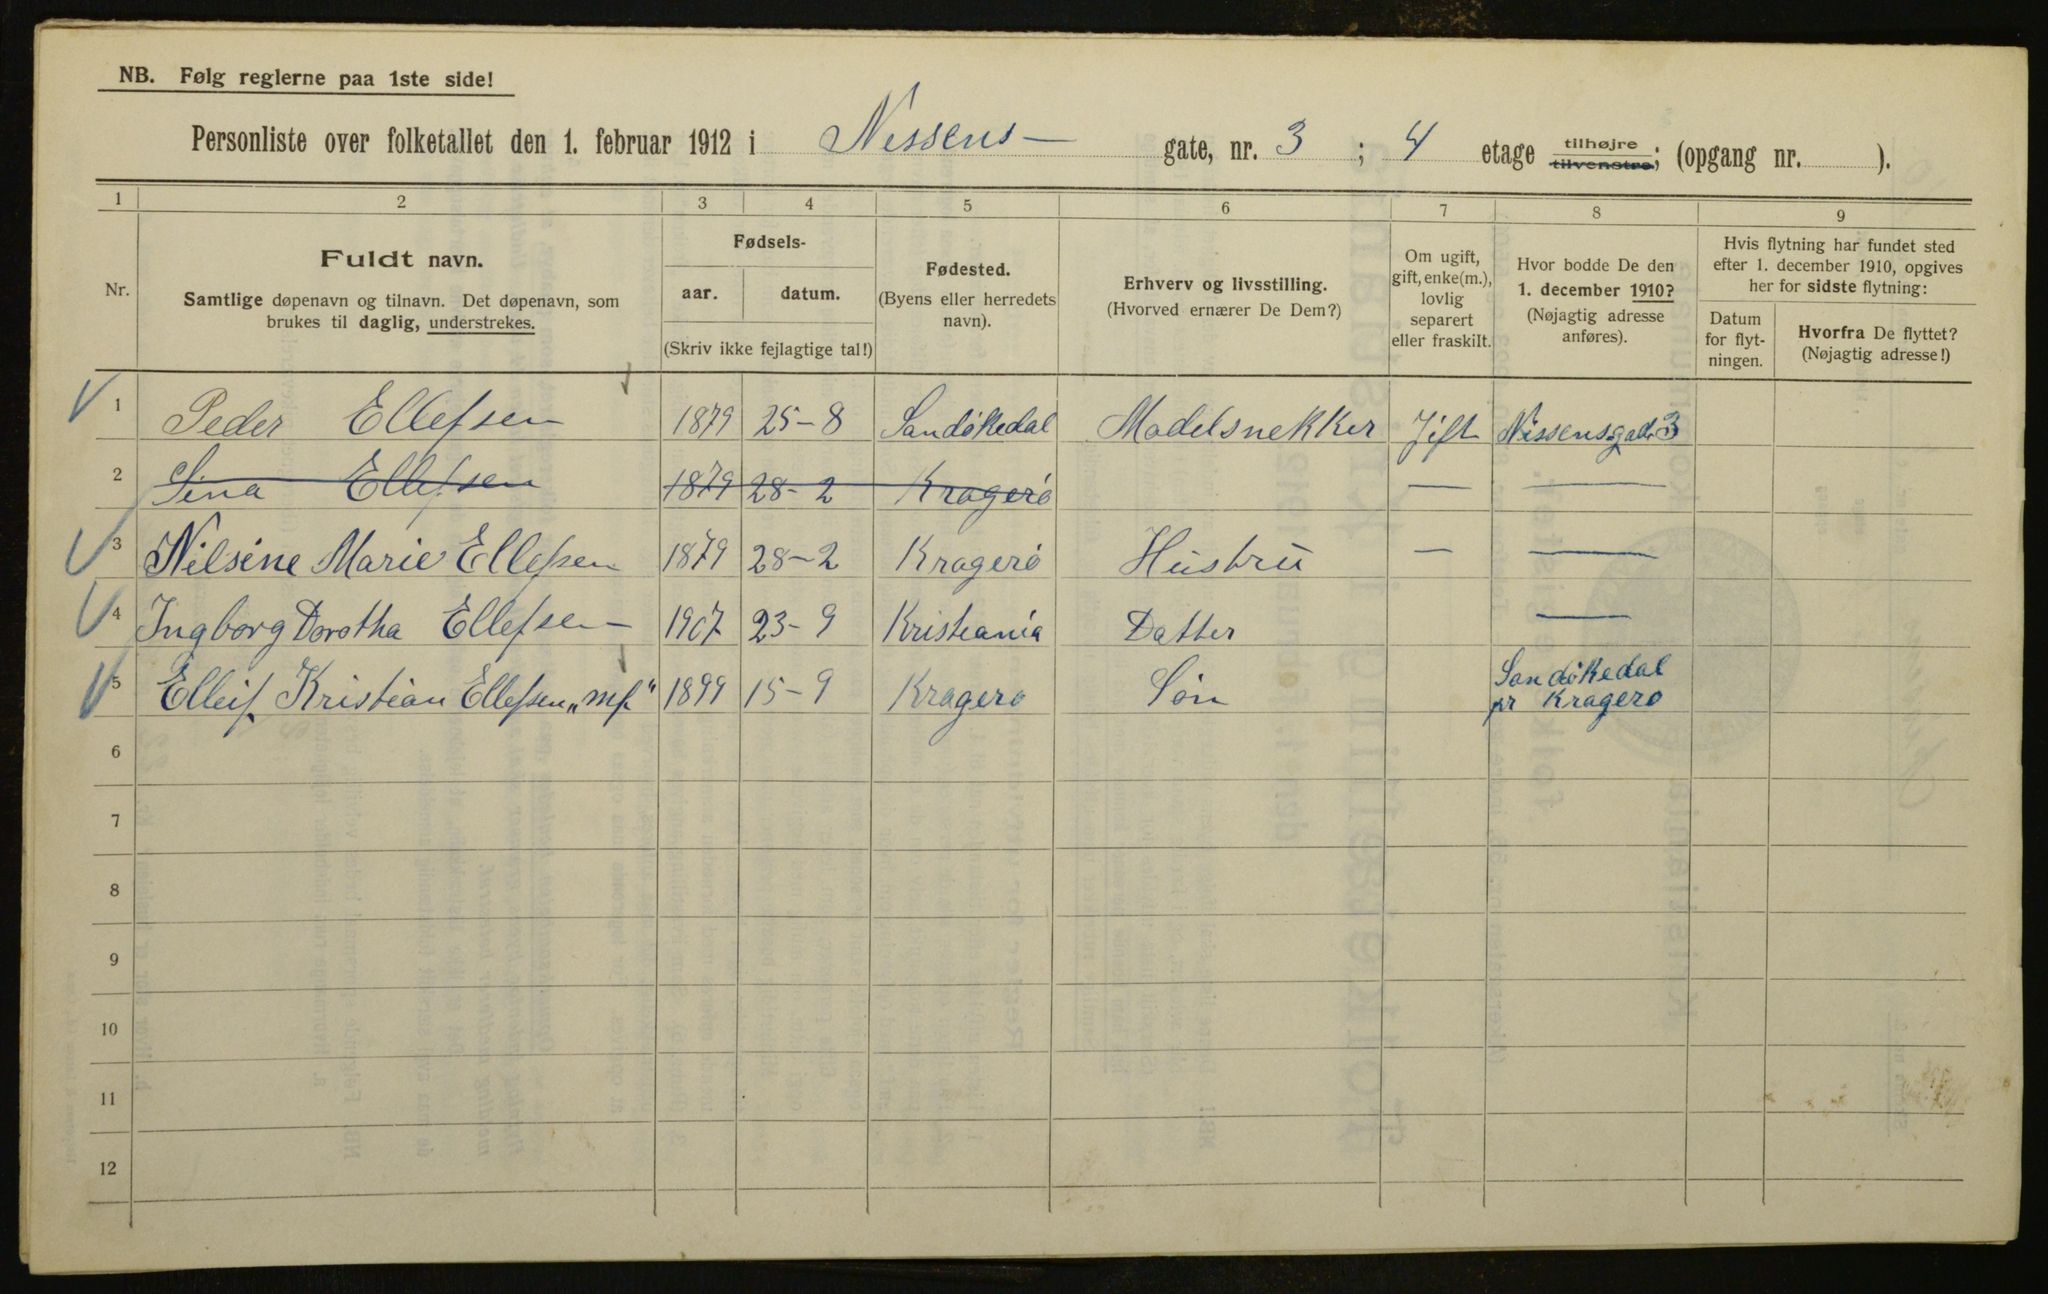 NB. Følg reglerne paa 1ste side!
Personliste over folketallet den 1. februar 1912 i Nissens— gate, nr. 3 ; 4 etage tilhøjre tilvenstre; (opgang nr. ).
1 2 3 4 5 6 7 8 9
Nr.
Fuldt navn.
Samtlige døpenavn og tilnavn. Det døpenavn, som
brukes til daglig, understrekes.
Fødsels-
aar. datum.
(Skriv ikke fejlagtige tal!)
Fødested.
(Byens eller herredets
navn).
Erhverv og livsstilling.
(Hvorved ernærer De Dem?)
Om ugift,
gift, enke(m.),
lovlig
separert
eller fraskilt.
Hvor bodde De den
1. december 1910?
(Nøjagtig adresse
anføres).
Hvis flytning har fundet sted
efter 1. december 1910, opgives
her for sidste flytning:
Datum
for flyt-
ningen.
Hvorfra De flyttet?
(Nøjagtig adresse!)
1 Peder Ellefsen 1879 25-8 Sandökedal Modelsnekker Gift Nissensgade 3
2 Sina Ellefsen 1879 28-2 Kragerö — —
3 Nilsine Marie Ellefsen 1879 28-2 Kragerö Hustru — —
4 Ingborg Dorotha Ellefsen 1907 23-9 Kristiania Datter —
5 Elleif Kristian Ellefsen 1899 15-9 Kragerø Sön Sandökedal
pr Kragerø
6
7
8
9
10
11
12